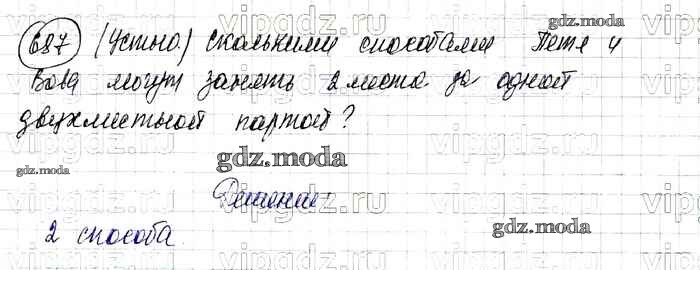 687 (Устно.) Сколькими способами Петя и
Вова могут занять 2 места за одной
двухместной партой?
gdz.moda
gdz.moda
gdz.moda
Решение:
2 способа.